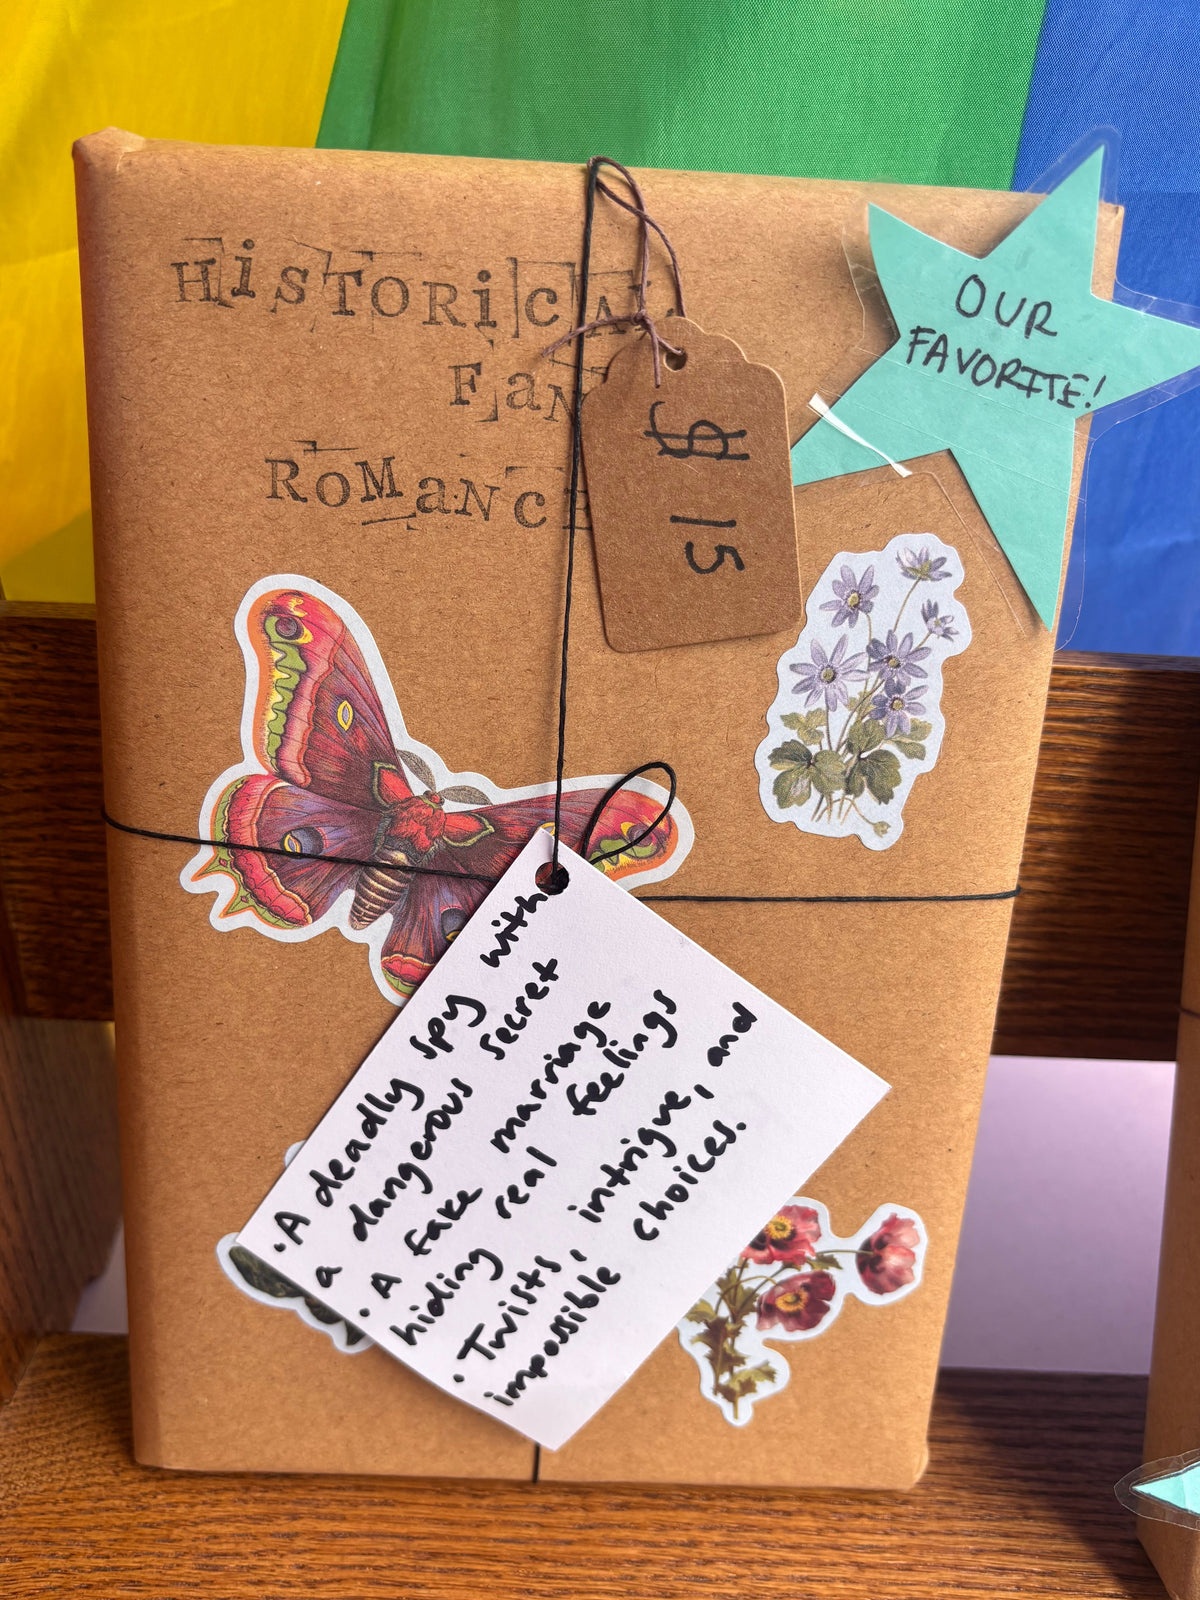 HiSTORiCAL
FaN
RoMaNCE
$15
OUR
FAVORITE!
• A deadly spy with
a dangerous secret
• A fake marriage
hiding real feelings
• Twists, intrigue, and
impossible choices.